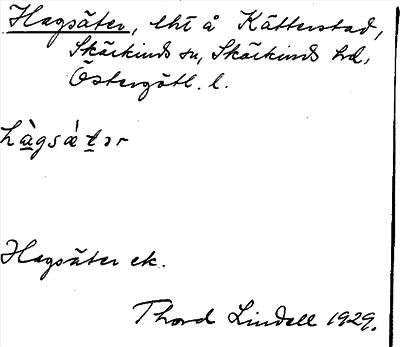 Hagsäter, lht å Kätterstad,
Skärkinds sn, Skärkinds hd,
Östergötl. l.
hàgsä́tər
Hagsäter ek.
Thord Lindell 1929.